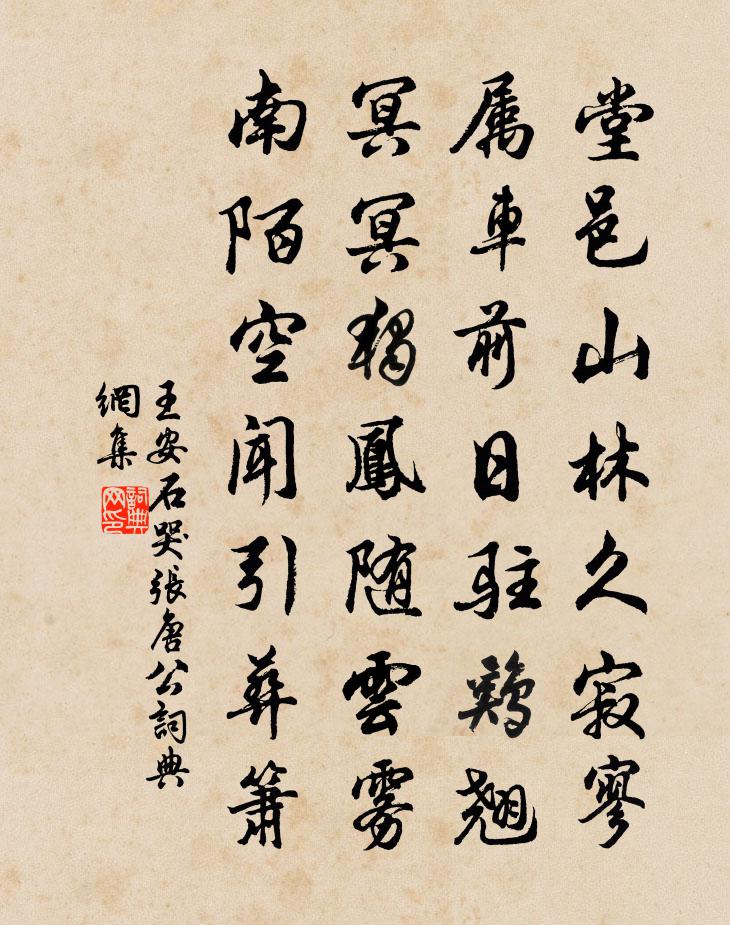 堂邑山林久寂寥
属車前日駐鷄翹
冥冥獨鳳随雲雾
南陌空聞引葬簫
王安石哭張唐公詞典
網集
詞典網印